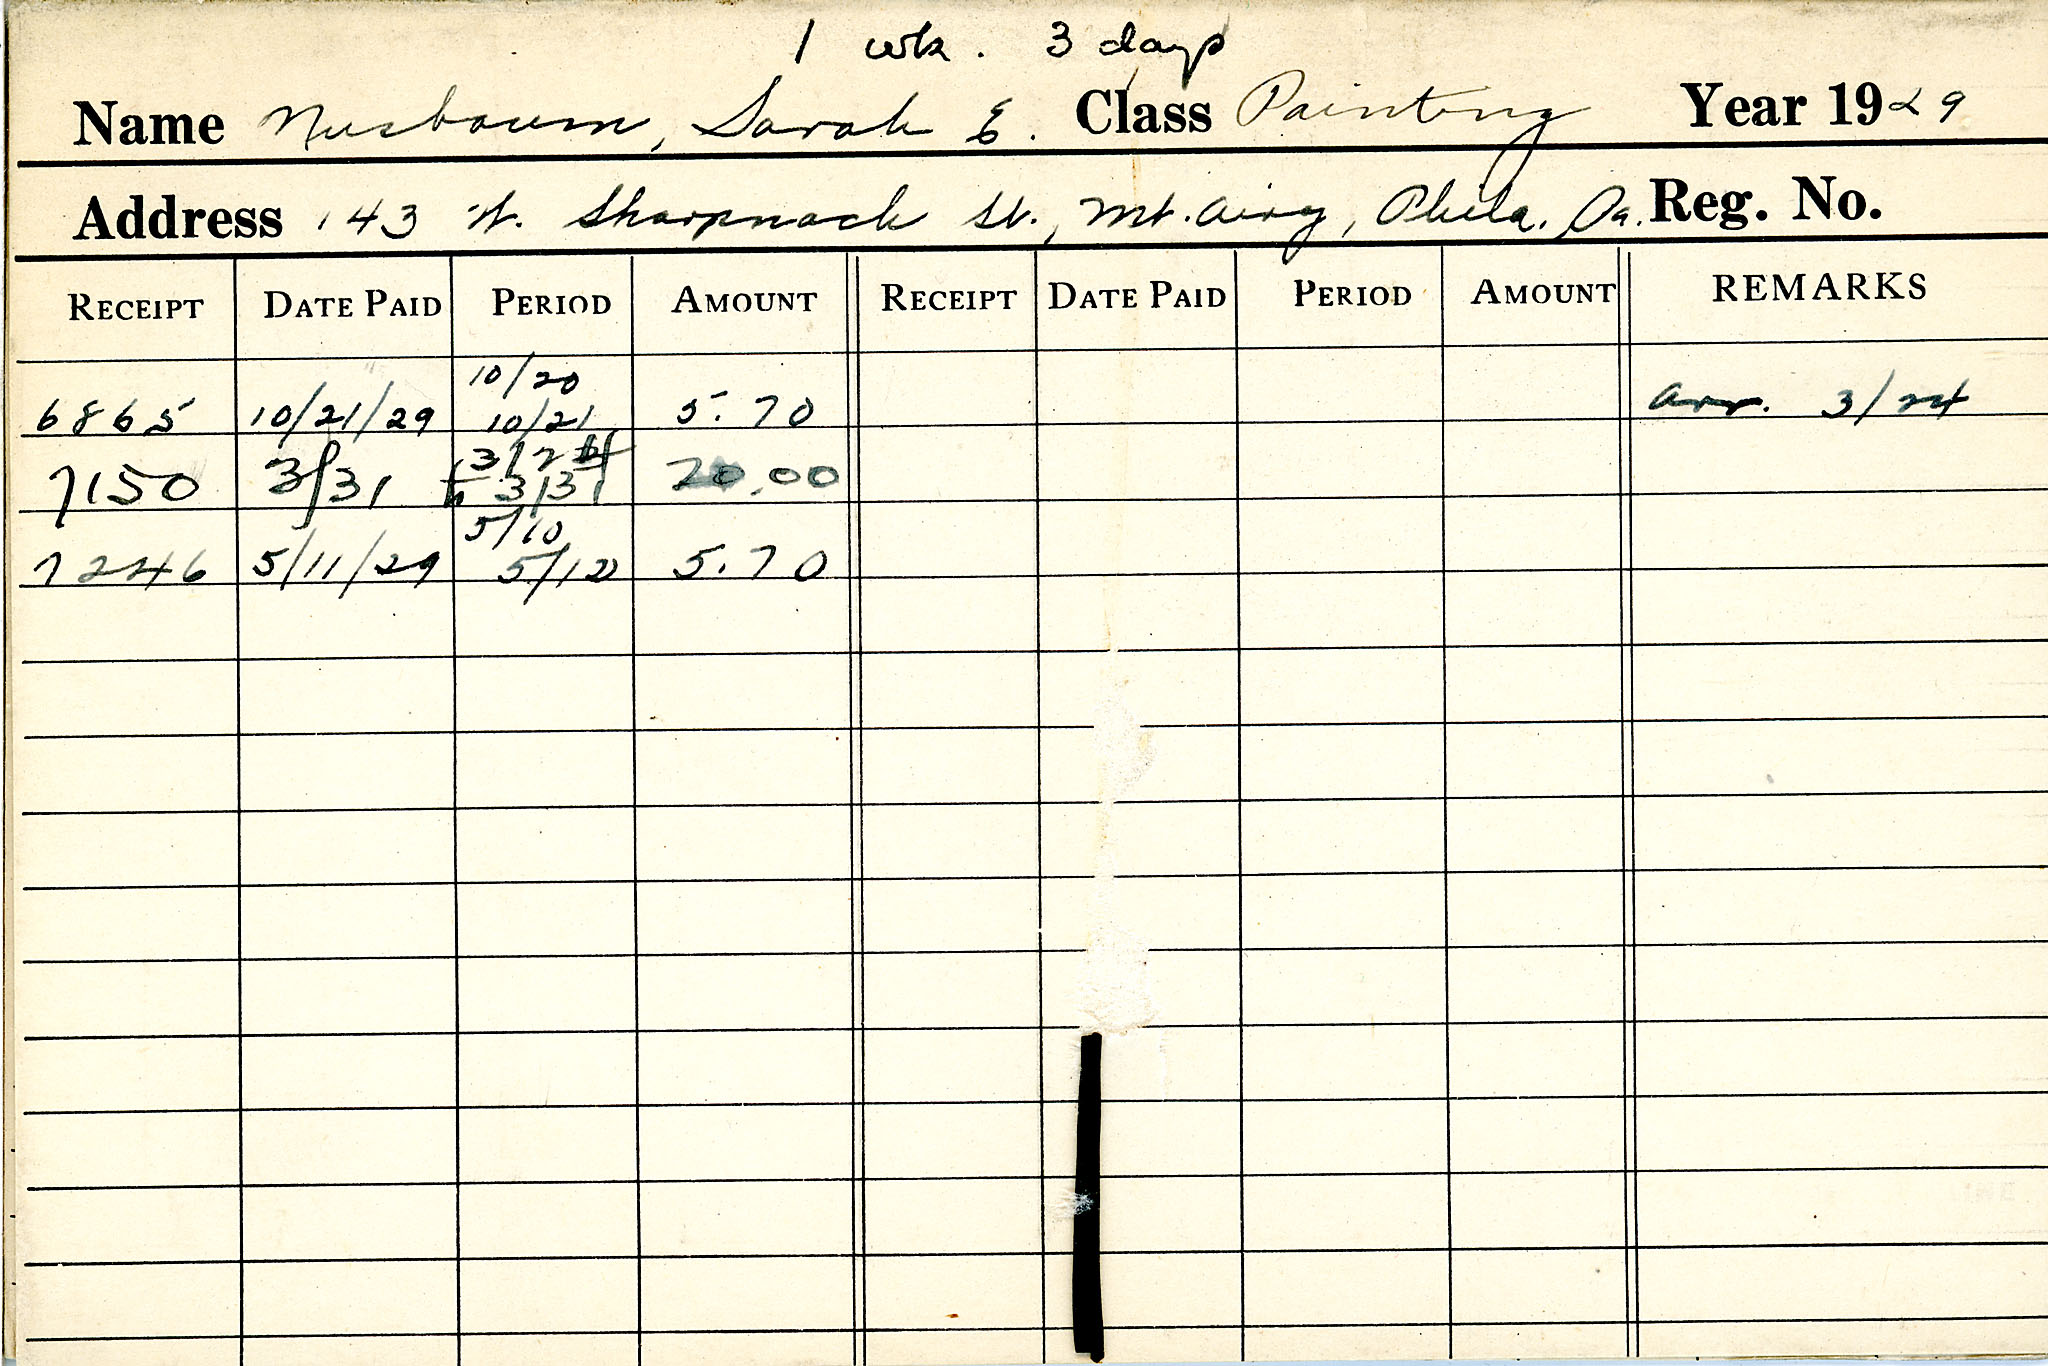 1 wk. 3 days
Name Nusbaum, Sarah E. Class Painting Year 1929
Address 143 W. Sharpnack St., Mt. Airy, Phila. Pa. Reg. No.
RECEIPT DATE PAID PERIOD AMOUNT RECEIPT DATE PAID PERIOD AMOUNT REMARKS
10/20
6865 10/21/29 10/21 5.70 Arr. 3/24
3/24
7150 3/31 to 3/31 20.00
5/10
7246 5/11/29 5/12 5.70